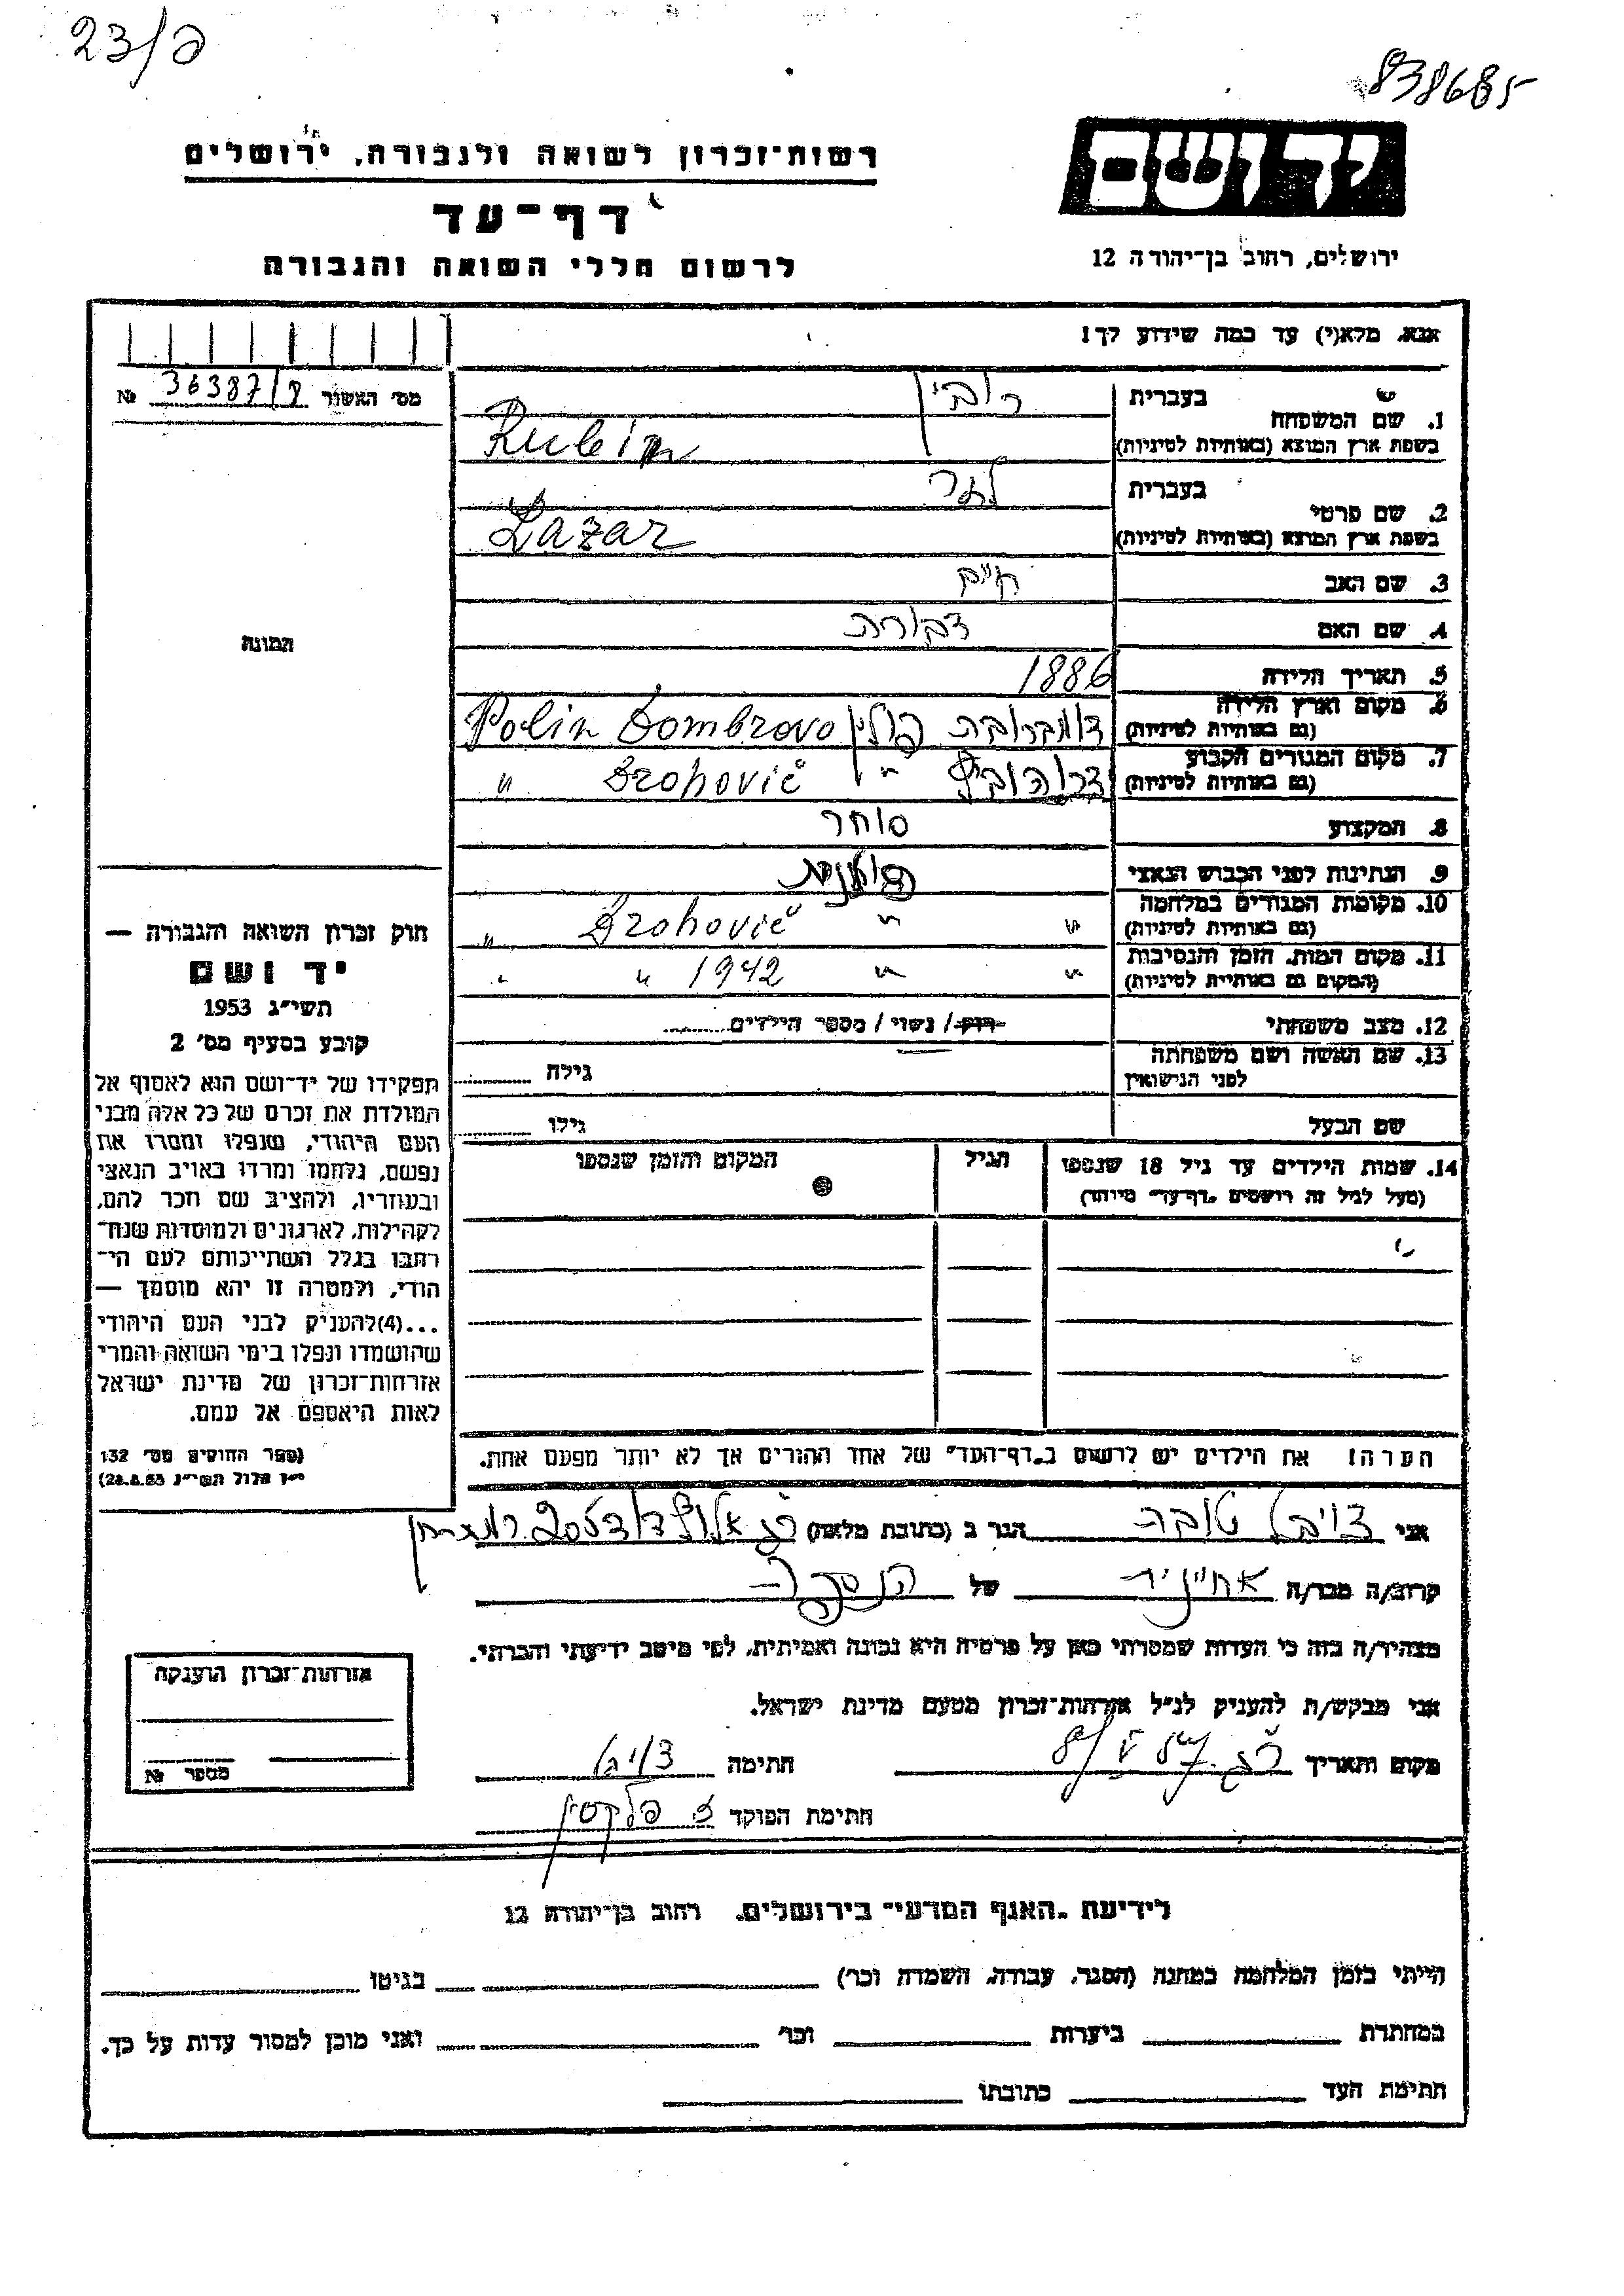 23/פ
838685
יד ושם
רשות־זכרון לשואה ולגבורה, ירושלים
דף־עד
לרשום חללי השואה והגבורה
ירושלים, רחוב בן־יהודה 12
אנא, מלא(י) עד כמה שידוע לך!
מס׳ האשור 36387/ №
תמונה
1. שם המשפחה בעברית רובין
בשפת ארץ המוצא (באותיות לטיניות) Rubin
2. שם פרטי בעברית לזר
בשפת ארץ המוצא (באותיות לטיניות) Lazar
3. שם האב חיים
4. שם האם דבורה
5. תאריך הלידה 1886
6. מקום וארץ הלידה (גם באותיות לטיניות) דומברובה פולין Dombrovo Polin
7. מקום המגורים הקבוע (גם באותיות לטיניות) דרוהוביץ " Drohovič "
8. המקצוע סוחר
9. הנתינות לפני הכבוש הנאצי פולנית
10. מקומות המגורים במלחמה (גם באותיות לטיניות) " " Drohovič "
11. מקום המות, הזמן והנסיבות (המקום גם באותיות לטיניות) " " 1942 " "
12. מצב משפחתי רוק/ נשוי / מספר הילדים
13. שם האשה ושם משפחתה לפני הנישואין גילה
שם הבעל גילו
14. שמות הילדים עד גיל 18 שנספו הגיל המקום והזמן שנספו
(מעל לגיל זה רושמים „דף־עד״ מיוחד)
הערה! את הילדים יש לרשום ב„דף־העד״ של אחד ההורים אך לא יותר מפעם אחת.
חוק זכרון השואה והגבורה —
יד ושם
תשי״ג 1953
קובע בסעיף מס׳ 2
תפקידו של יד־ושם הוא לאסוף אל
המולדת את זכרם של כל אלה מבני
העם היהודי, שנפלו ומסרו את
נפשם, נלחמו ומרדו באויב הנאצי
ובעוזריו, ולהציב שם וזכר להם,
לקהילות, לארגונים ולמוסדות שנח־
רבו בגלל השתייכותם לעם הי־
הודי, ולמטרה זו יהא מוסמך —
...(4)להעניק לבני העם היהודי
שהושמדו ונפלו בימי השואה והמרי
אזרחות־זכרון של מדינת ישראל
לאות היאספם אל עמם.
(ספר החוקים מס׳ 132
י״ז אלול תשי״ג 28.8.53)
אני צויבל טובה הגר ב (כתובת מלאה)
קרוב/ה מכר/ה אחיינית של הנספה
מצהיר/ה בזה כי העדות שמסרתי כאן על פרטיה היא נכונה ואמיתית, לפי מיטב ידיעתי והכרתי.
אני מבקש/ת להעניק לנ״ל אזרחות־זכרון מטעם מדינת ישראל.
מקום ותאריך חתימה
חתימת הפוקד
אזרחות־זכרון הוענקה
מספר №
לידיעת „האגף המדעי״ בירושלים, רחוב בן־יהודה 12
הייתי בזמן המלחמה במחנה (הסגר, עבודה, השמדה וכו׳) בגיטו
במחתרת ביערות וכו׳ ואני מוכן למסור עדות על כך.
חתימת העד כתובתו